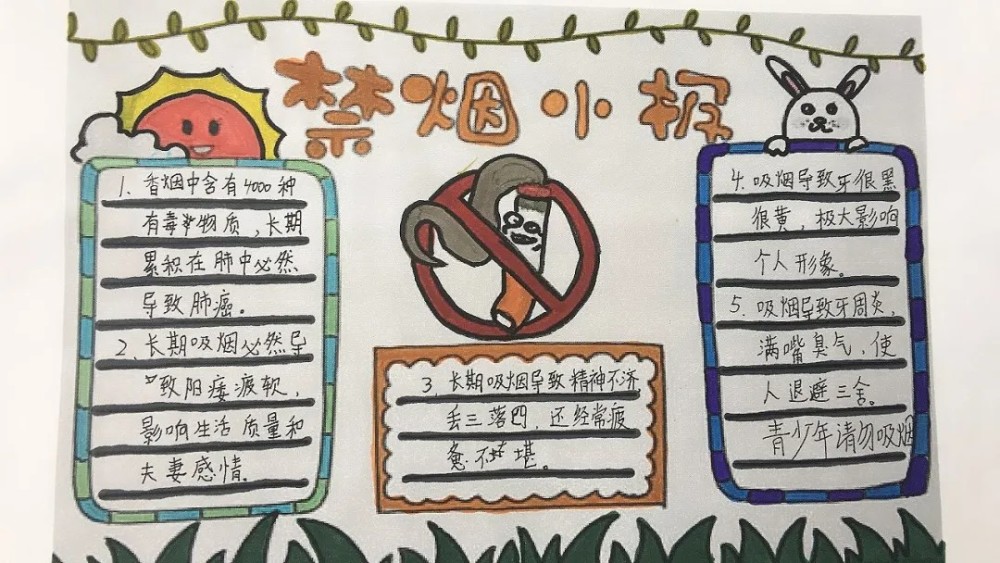 禁烟小报
1. 香烟中含有4000种
有毒物质,长期
累积在肺中必然
导致肺癌。
2、长期吸烟必然导
致阳痿疲软,
影响生活质量和
夫妻感情。
3、长期吸烟导致精神不济
丢三落四,还经常疲
惫不堪。
4. 吸烟导致牙很黑
很黄,极大影响
个人形象。
5. 吸烟导致牙周炎,
满嘴臭气,使
人退避三舍。
青少年请勿吸烟